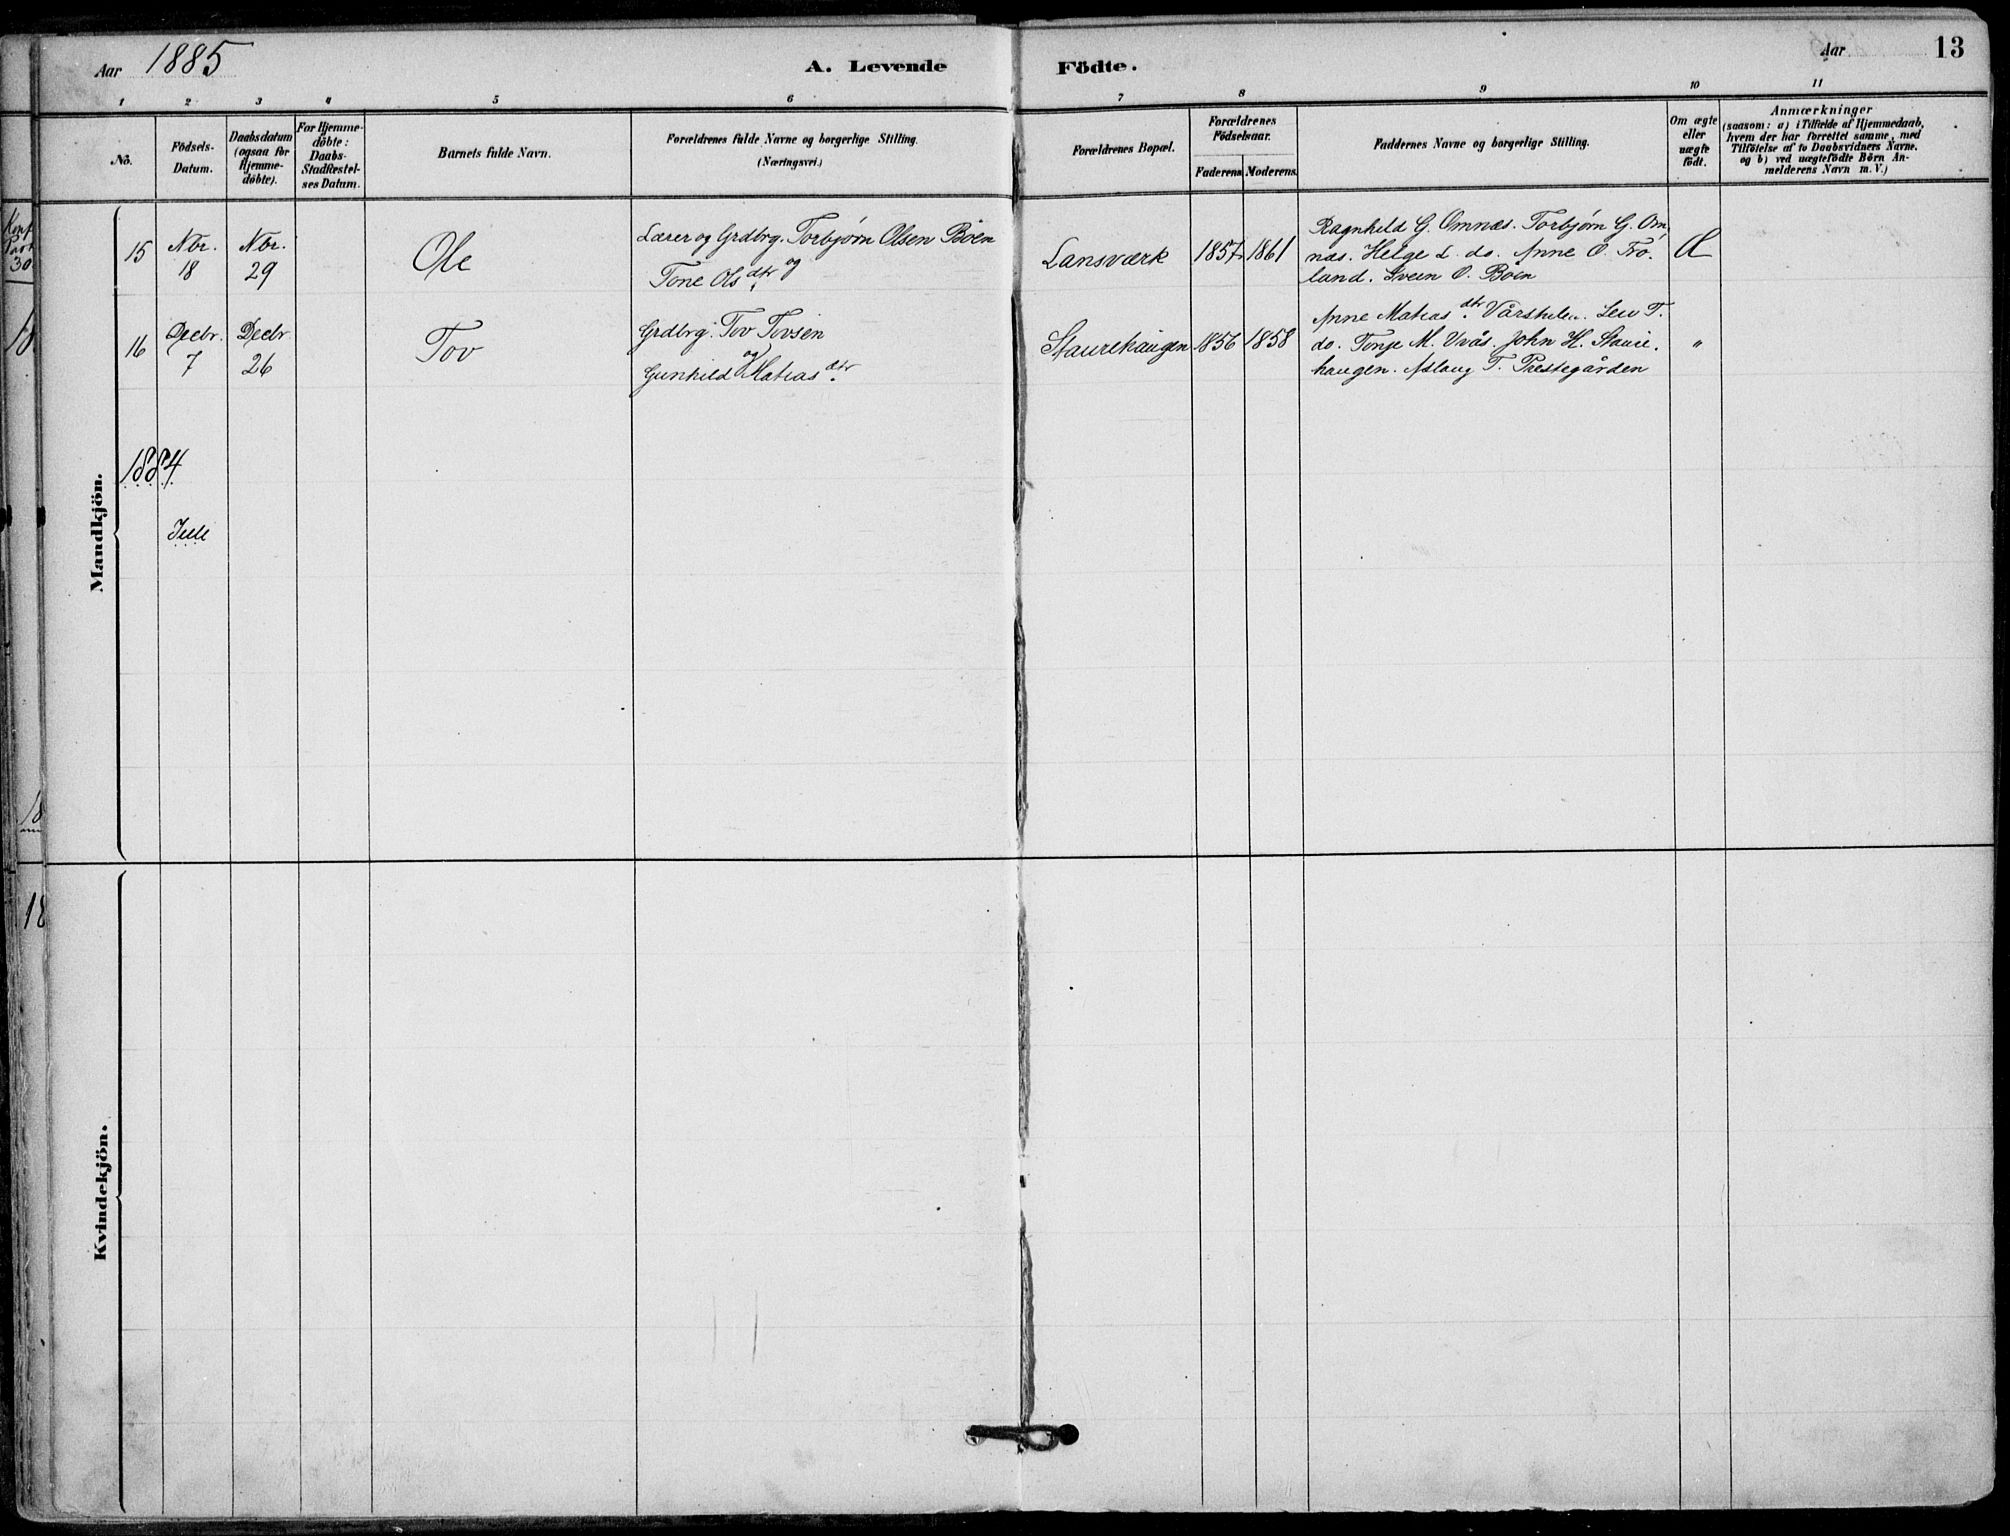 Aar 1885
A. Levende Födte.
Aar
13
1 2 3 4 5 6 7 8 9 10 11
No.
Födsels-
Datum.
Daabsdatum
(ogsaa for
Hjemme-
döbte).
For Hjemme-
döbte:
Daabs-
Stadfæstel-
ses Datum.
Barnets fulde Navn.
Forældrenes fulde Navne og borgerlige Stilling.
(Næringsvei.)
Forældrenes Bopæl.
Forældrenes
Födselsaar.
Faderens Moderens.
Faddernes Navne og borgerlige Stilling.
Om ægte
eller
uægte
födt.
Anmærkninger
(saasom: a) i Tilfælde af Hjemmedaab,
hvem der har forrettet samme, med
Tilföielse af to Daabsvidners Navne.
og b) ved uægtefödte Börn An-
melderens Navn m. V.)
Mandkjön.
15
Nbr.
18
Nbr.
29
Ole
Lærer og Grdbrg. Torbjørn Olsen Böen
og
Tone Olsdtr.
Lansværk
1857
1861
Ragnhild G. Omnæs. Torbjørn G. Om
næs. Helge L. do. Anne O. Trö.
land. Sveen O. Böen
Æ
16
Decbr.
7
Decbr
26
Tov
Grdbrg. Tov Tovsen
og
Gunhild Matiasdtr.
Staurehaugen
1856
1858
Anne Matiasdtr. Vårstulen. Lew T.
do. Tonje M. Vrås. John H. Staure.
haugen. Aslaug T. Prestegården
"
1884
Kvindekjön.